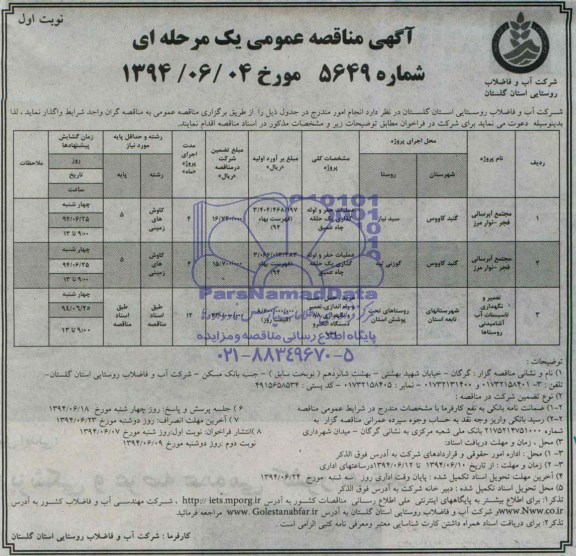 نوبت اول
آگهی مناقصه عمومی یک مرحله ای
شماره ۵۶۴۹ مورخ ۱۳۹۴/۰۶/۰۴
شرکت آب و فاضلاب
روستایی استان گلستان
شرکت آب و فاضلاب روستایی استان گلستان در نظر دارد انجام امور مندرج در جدول ذیل را از طریق برگزاری مناقصه عمومی به مناقصه گران واجد شرایط واگذار نماید ، لذا
بدینوسیله دعوت می نماید برای شرکت در فراخوان مطابق توضیحات زیر و مشخصات مذکور در اسناد مناقصه اقدام نمایند.
ردیف نام پروژه محل اجرای پروژه شهرستان روستا مشخصات کلی پروژه مبلغ برآورد اولیه «ریال» مبلغ تضمین شرکت درمناقصه «ریال» مدت پروژه «ماه» رشته و حداقل پایه مورد نیاز رشته پایه زمان گشایش پیشنهادها روز تاریخ ساعت ملاحظات
۱ مجتمع آبرسانی فجر -نوار مرز گنبد کاووس سید نیاز عملیات حفر و لوله گذاری یک حلقه چاه عمیق (فهرست بهاء ۹۴) ۴ کاوش های زمینی ۵ چهار شنبه ۹۴/۰۶/۲۵ ۹:۰۰ تا ۱۳
۲ مجتمع آبرسانی فجر -نوار مرز گنبد کاووس عملیات حفر و لوله گذاری یک حلقه چاه عمیق (فهرست بهاء ۹۴) ۴ کاوش های زمینی ۵ چهار شنبه ۹۴/۰۶/۲۵ ۹:۰۰ تا ۱۳
۳ تعمیر و نگهداری تاسیسات آب آشامیدنی روستاها شهرستانهای تابعه استان روستاهای تحت پوشش استان ۱۲ طبق اسناد مناقصه طبق اسناد مناقصه چهار شنبه ۹۴/۰۶/۲۵ ۹:۰۰ تا ۱۳
ParsNamadData
پایگاه اطلاع رسانی مناقصه و مزایده
۰۲۱-۸۸۳۴۹۶۷۰-۵
توضیحات :
۱) نام و نشانی مناقصه گزار : گرگان – خیابان شهید بهشتی – بهشت شانزدهم ( نوبخت سابق ) – جنب بانک مسکن – شرکت آب و فاضلاب روستایی استان گلستان-
تلفن : ۳- ۰۱۷۳۲۱۵۸۴۰۱ - ۰۱۷۳۲۱۳۱۴۰۰ - نمابر : ۰۱۷۳۲۱۵۸۴۰۵ – کد پستی : ۴۹۱۵۶۵۸۵۳۴
۲) نوع تضمین شرکت در مناقصه :
۱-۲) ضمانت نامه بانکی به نفع کارفرما با مشخصات مندرج در شرایط عمومی مناقصه
۲-۲) رسید بانکی واریز وجه نقد به حساب وجوه سپرده عمرانی مناقصه گزار به
شماره ۲۱۷۵۲۱۴۷۵۱۰۰۰ بانک ملی شعبه مرکزی به نشانی گرگان – میدان شهرداری
۳) محل ، زمان و مهلت دریافت اسناد:
۱-۳) محل : اداره امور حقوقی و قراردادهای شرکت به آدرس فوق الذکر
۲-۳) زمان و مهلت : از تاریخ ۱۳۹۴/۰۶/۱۰ تا ۱۳۹۴/۰۶/۱۲درساعتهای اداری
۴) آخرین مهلت تحویل اسناد تکمیل شده : پایان وقت اداری روز سه شنبه مورخ ۱۳۹۴/۰۶/۲۴
۵) محل تحویل اسناد تکمیل شده : دبیر خانه شرکت به آدرس فوق الذکر
۶ ) جلسه پرسش و پاسخ: روز چهار شنبه مورخ ۱۳۹۴/۰۶/۱۸
۷ ) آخرین مهلت انصراف: روز دوشنبه مورخ ۱۳۹۴/۰۶/۲۳
۸ )انتشار فراخوان: نوبت اول:روز شنبه مورخ ۱۳۹۴/۰۶/۰۷
نوبت دوم :روز دوشنبه مورخ ۱۳۹۴/۰۶/۰۹
تذکر۱: برای اطلاع بیشتر به پایگاههای اینترنتی ملی اطلاع رسانی مناقصات کشور به آدرس http:// iets.mporg.ir ، شرکت مهندسی آب و فاضلاب کشور به آدرس
www.Nww.co.ir و شرکت آب و فاضلاب روستایی استان گلستان به آدرس www. Golestanabfar.ir مراجعه فرمائید.
تذکر۲: برای دریافت اسناد همراه داشتن کارت شناسایی معتبر ومعرفی نامه کتبی الزامی است
کارفرما : شرکت آب و فاضلاب روستایی استان گلستان